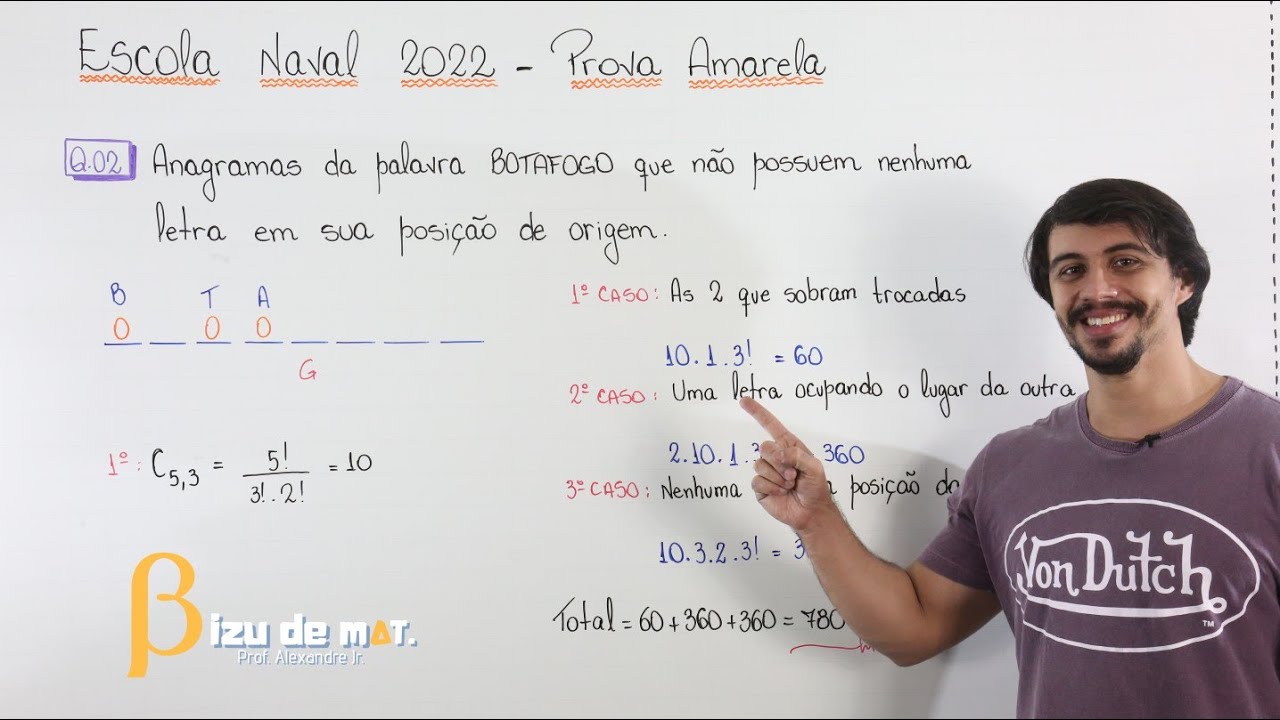 Escola Naval 2022 - Prova Amarela
Q.02 Anagramas da palavra BOTAFOGO que não possuem nenhuma
letra em sua posição de origem.
B T A
O O O
G
1º: C5,3 = 5! / 3!.2! = 10
1º CASO: As 2 que sobram trocadas
10.1.3! = 60
2º CASO: Uma letra ocupando o lugar da outra
2.10.1.3 360
3º CASO: Nenhuma posição
10.3.2.3! = 3
Total = 60 + 360 + 360 = 780
βizu de mat.
Prof. Alexandre Jr.
Von Dutch
TM